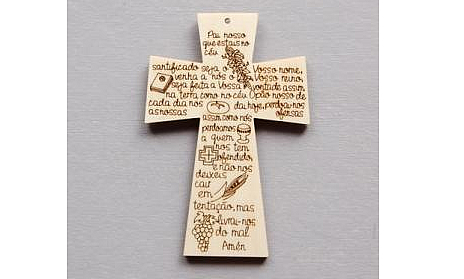 Pai nosso
que estais no
céu
santificado seja o Vosso nome,
venha a nós o Vosso reino,
seja feita a Vossa vontade assim
na terra como no céu O pão nosso de
cada dia nos dai hoje, perdoai-nos
as nossas ofensas
assim como nós
perdoamos
a quem
nos tem
ofendido,
e não nos
deixeis
cair
em
tentação, mas
livrai-nos
do mal
Amén